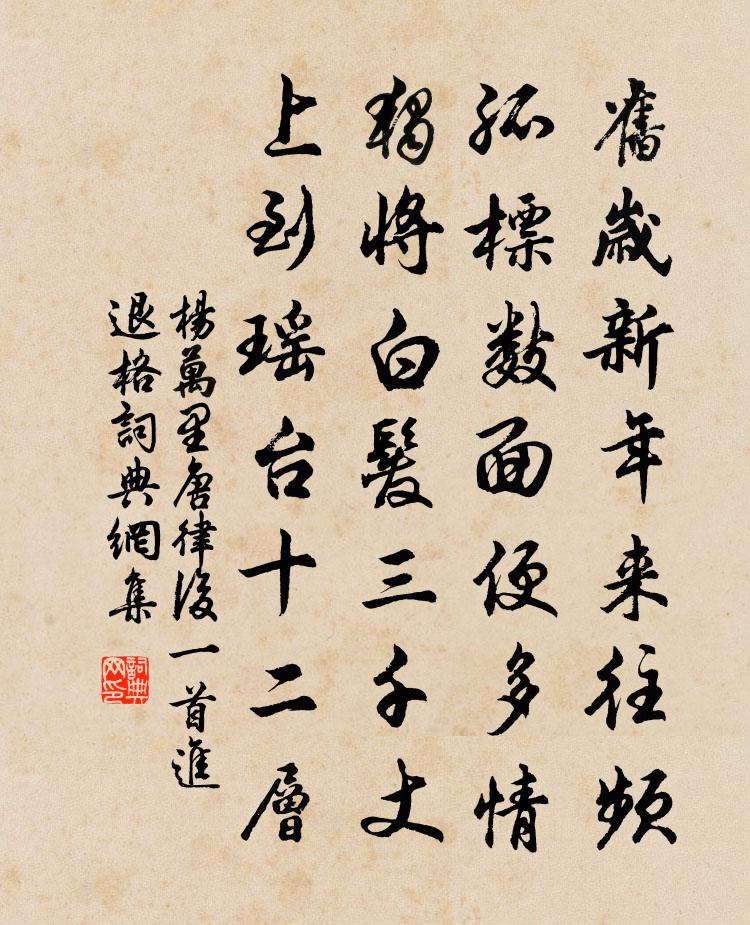 舊歲新年来往頻
孤標數面便多情
獨將白髮三千丈
上到瑶台十二層
楊萬里唐律後一首進
退格詞典網集
詞典
网印